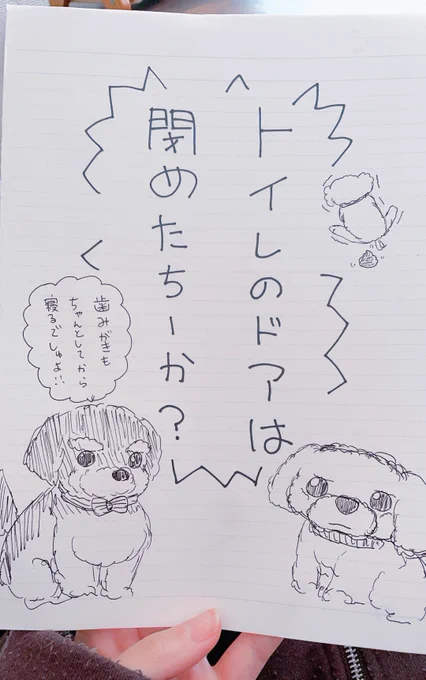 トイレのドアは
閉めたちーか？
歯みがきも
ちゃんとしてから
寝るでしゅよ!!